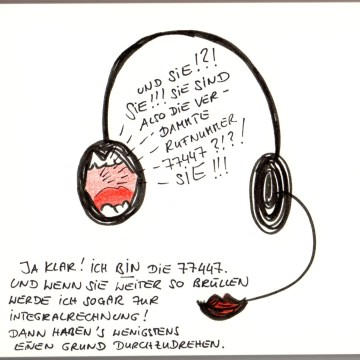 UND SIE!?!
SIE!!! SIE SIND
ALSO DIE VER-
DAMMTE
RUFNUMMER
77447?!?!
SIE!!!
JA KLAR! ICH BIN DIE 77447.
UND WENN SIE WEITER SO BRÜLLEN
WERDE ICH SOGAR ZUR
INTEGRALRECHNUNG!
DANN HABEN'S WENIGSTENS
EINEN GRUND DURCHZUDREHEN.